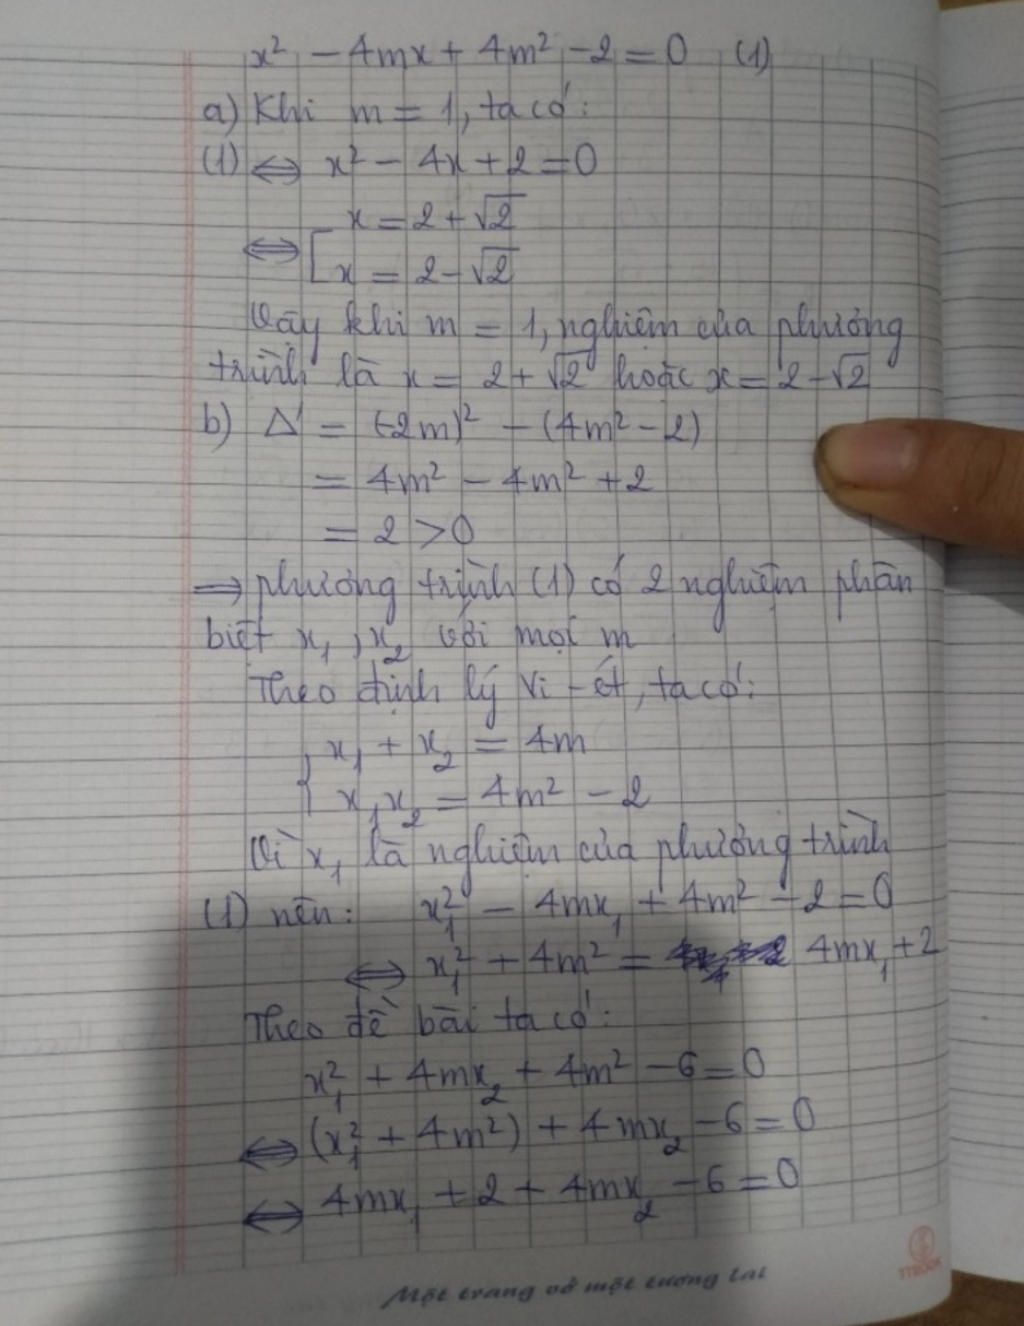 x² - 4mx + 4m² - 2 = 0 (1)
a) Khi m = 1, ta có:
(1) ⇔ x² - 4x + 2 = 0
x = 2 + √2
⇔ [
x = 2 - √2
Vậy khi m = 1, nghiệm của phương
trình là x = 2 + √2 hoặc x = 2 - √2
b) Δ' = (-2m)² - (4m² - 2)
= 4m² - 4m² + 2
= 2 > 0
⇒ phương trình (1) có 2 nghiệm phân
biệt x₁, x₂ với mọi m
Theo định lý Vi-ét, ta có:
{ x₁ + x₂ = 4m
x₁x₂ = 4m² - 2
Vì x₁ là nghiệm của phương trình
(1) nên: x₁² - 4mx₁ + 4m² - 2 = 0
⇔ x₁² + 4m² = 4mx₁ + 2
Theo đề bài ta có:
x₁² + 4mx₂ + 4m² - 6 = 0
⇔ (x₁² + 4m²) + 4mx₂ - 6 = 0
⇔ 4mx₁ + 2 + 4mx₂ - 6 = 0
Một trang vở một tương lai